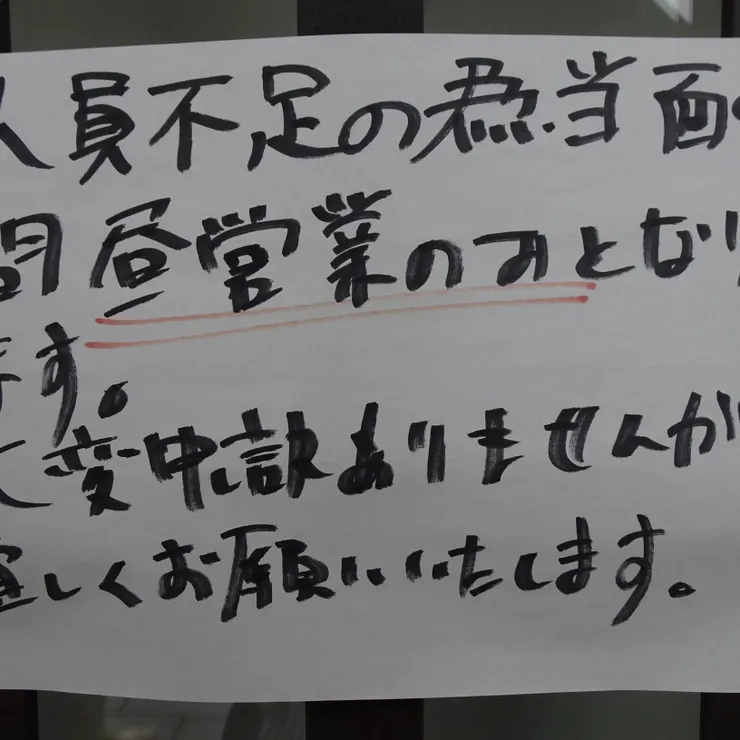 人員不足の為、当面の
間昼営業のみとなり
ます。
大変申し訳ありませんが
宜しくお願いいたします。